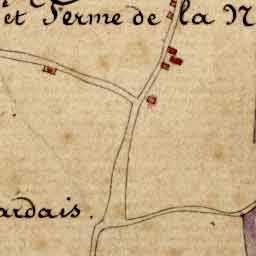 et Ferme de la N
ardais.